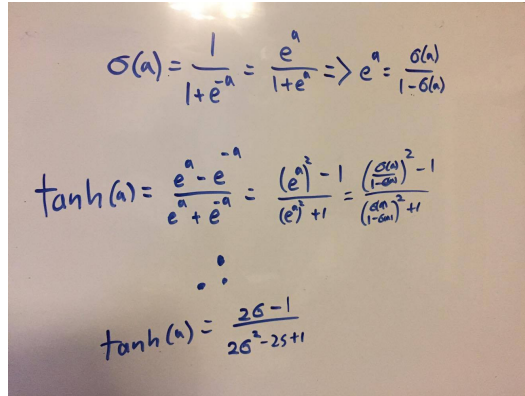 σ(a) = 1/(1+e^-a) = e^a/(1+e^a) => e^a = σ(a)/(1-σ(a))
tanh(a) = (e^a - e^-a)/(e^a + e^-a) = ((e^a)^2 - 1)/((e^a)^2 + 1) = ((σ(a)/(1-σ(a)))^2 - 1)/((σ(a)/(1-σ(a)))^2 + 1)
∴
tanh(a) = (2σ - 1)/(2σ^2 - 2s + 1)